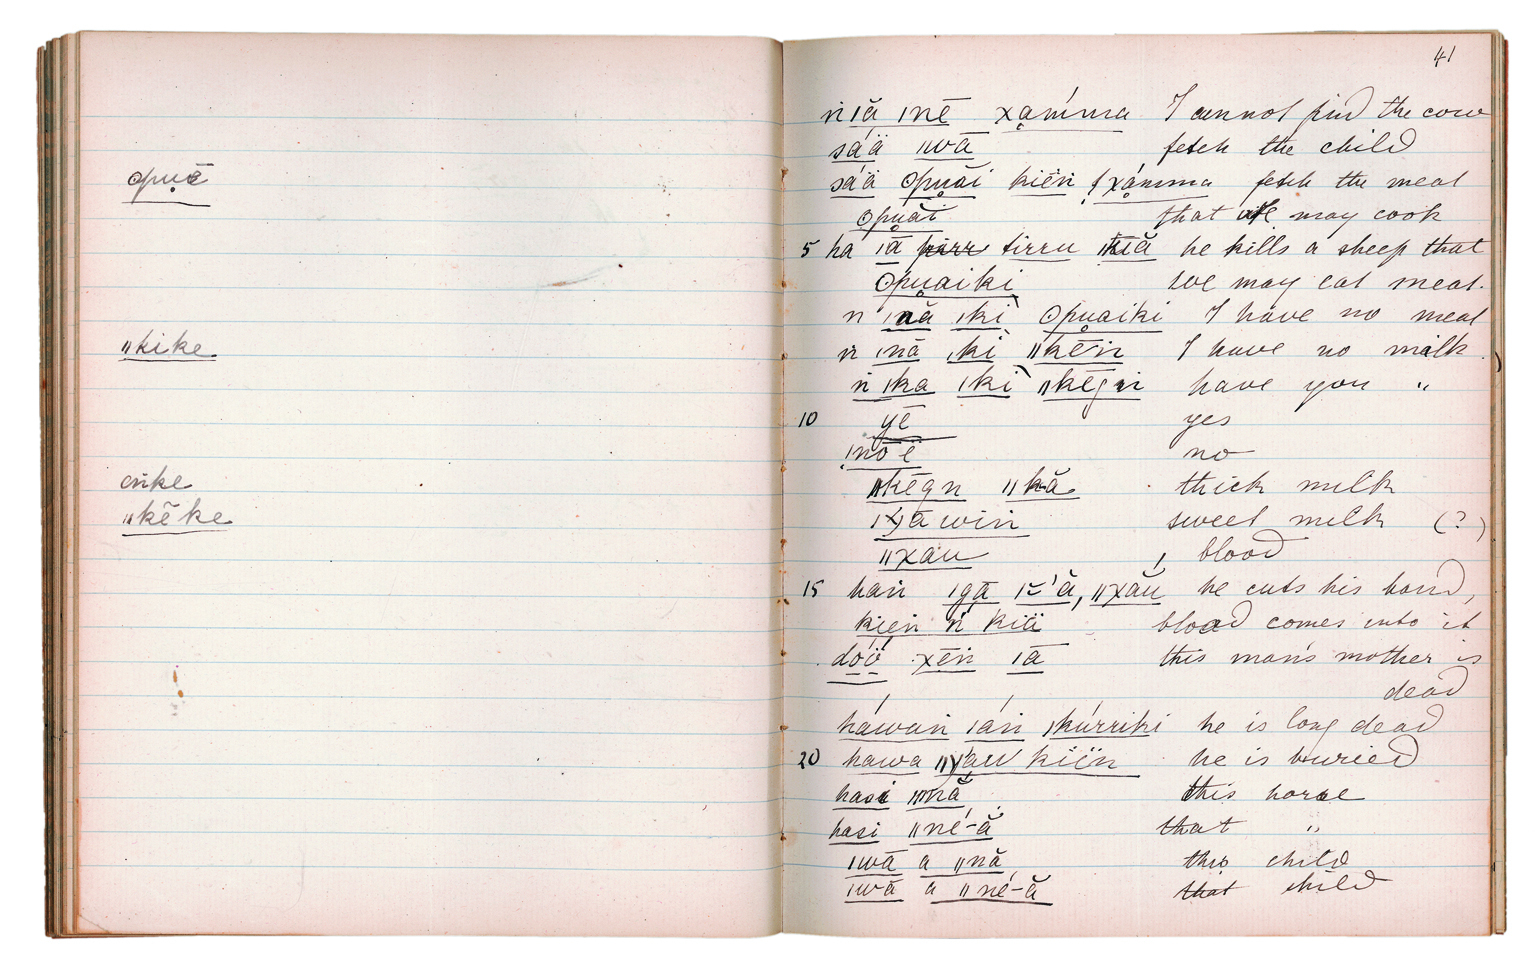 ʘpu̥ē
ǁkike
cṅke
ǁkēke
41
ṅ ǀă ǀnē χḁḿma I cannot find the cow
sá̈ä ǁwā fetch the child
sá̈ä ʘpu̥ăi kïëṅ ǃχḁ́mma fetch the meat
ʘpu̥ăi that we may cook
5 ha ǀā tirru ǁkiă he kills a sheep that
ʘpu̥aiki we may eat meat.
ṅ ǀnă ǀki ʘpu̥aiki I have no meat
ṅ ǀnā ǀkì ǁkēṅ I have no milk
ṅ ǀka ǀkì ǁkēgṅ have you "
10 yē yes
ǀnōē no
ǁkēgn ǁkă thick milk
ǀχā wiṅ sweet milk (?)
ǁχau blood
15 haṅ ǀgā ǀ'ă, ǁχău he cuts his hand,
kieṅ ṅ kïï blood comes into it
dóä χēṅ ǀā this man's mother is
dead
háwaṅ ǀáṅ ǀkúrriki he is long dead
20 hawa ǁχau kïïṅ he is buried
hasi ǁnă this horse
hasi ǁné-ă that "
ǀwā a ǁnă this child
ǀwā a ǁné-ă that child